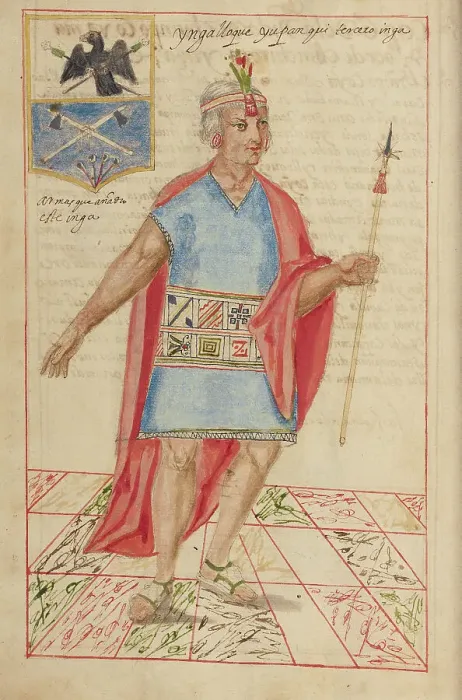 ynga lloque yupan qui tercero inga
armas que añadio
este inga